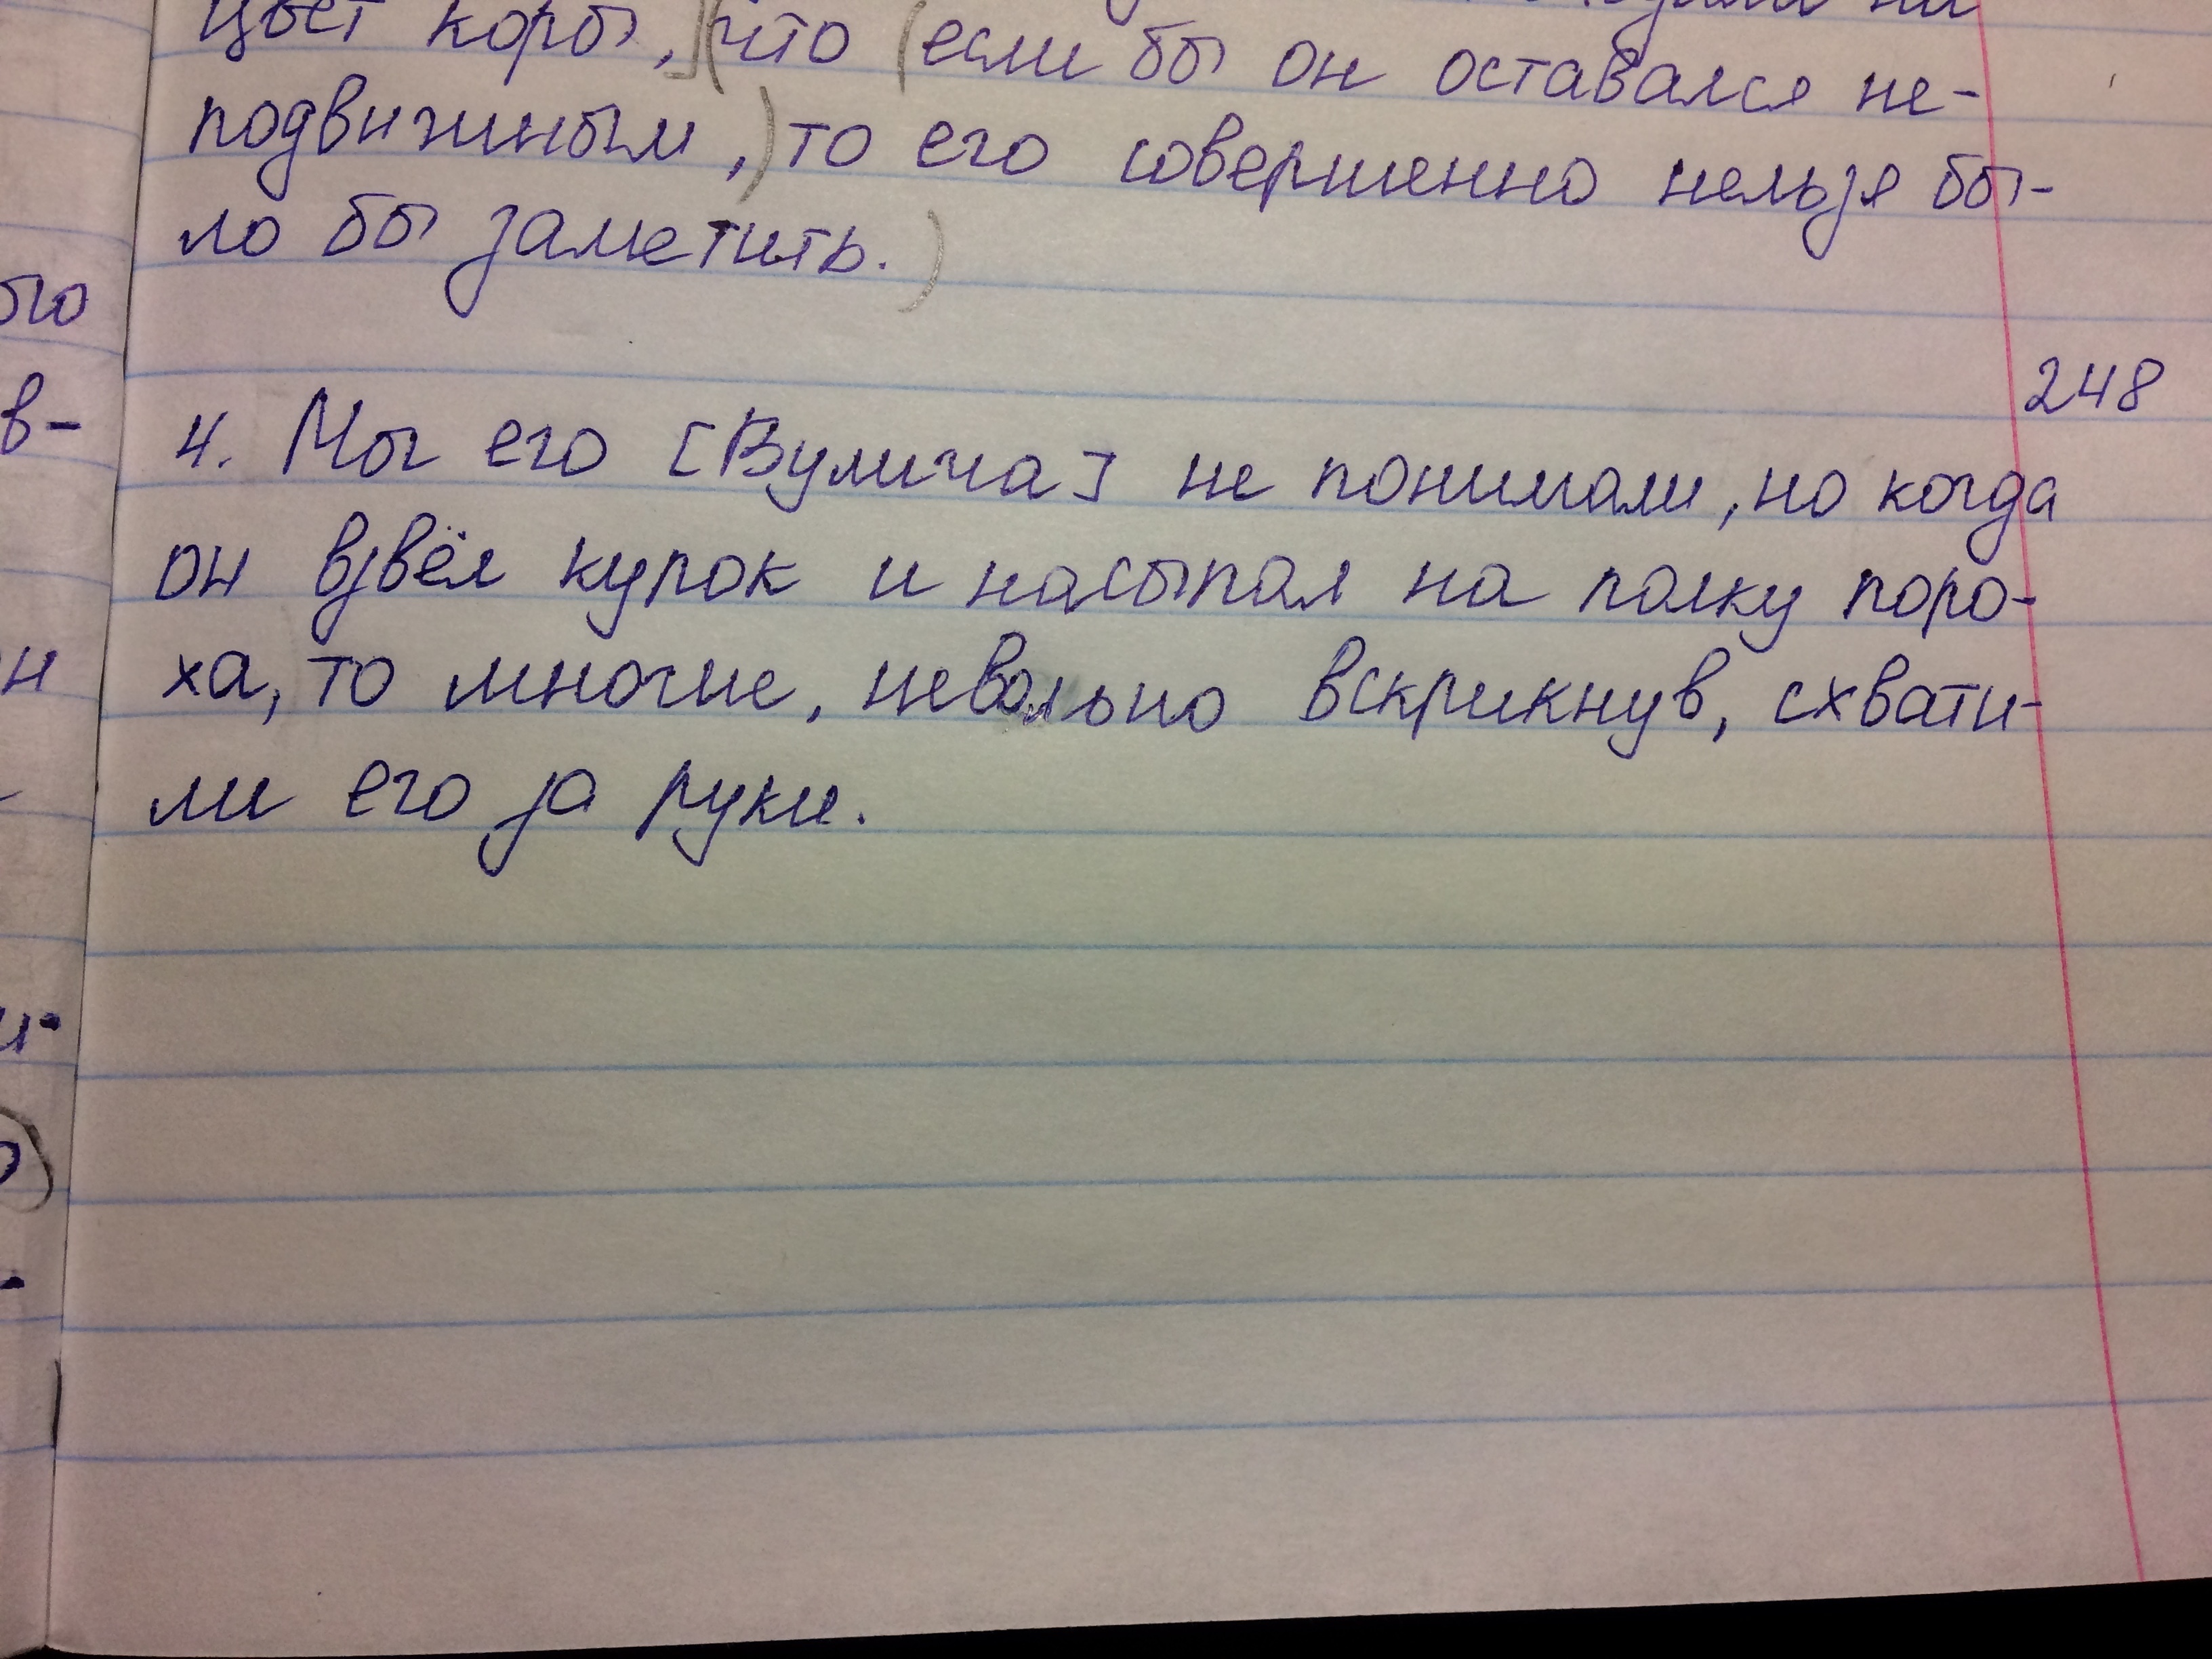 цвет коры,](что (если бы он оставался не-
подвижным,) то его совершенно нельзя бы-
ло бы заметить.)
248
4. Мы его [Вулича] не понимали, но когда
он взвёл курок и насыпал на полку поро-
ха, то многие, невольно вскрикнув, схвати-
ли его за руки.